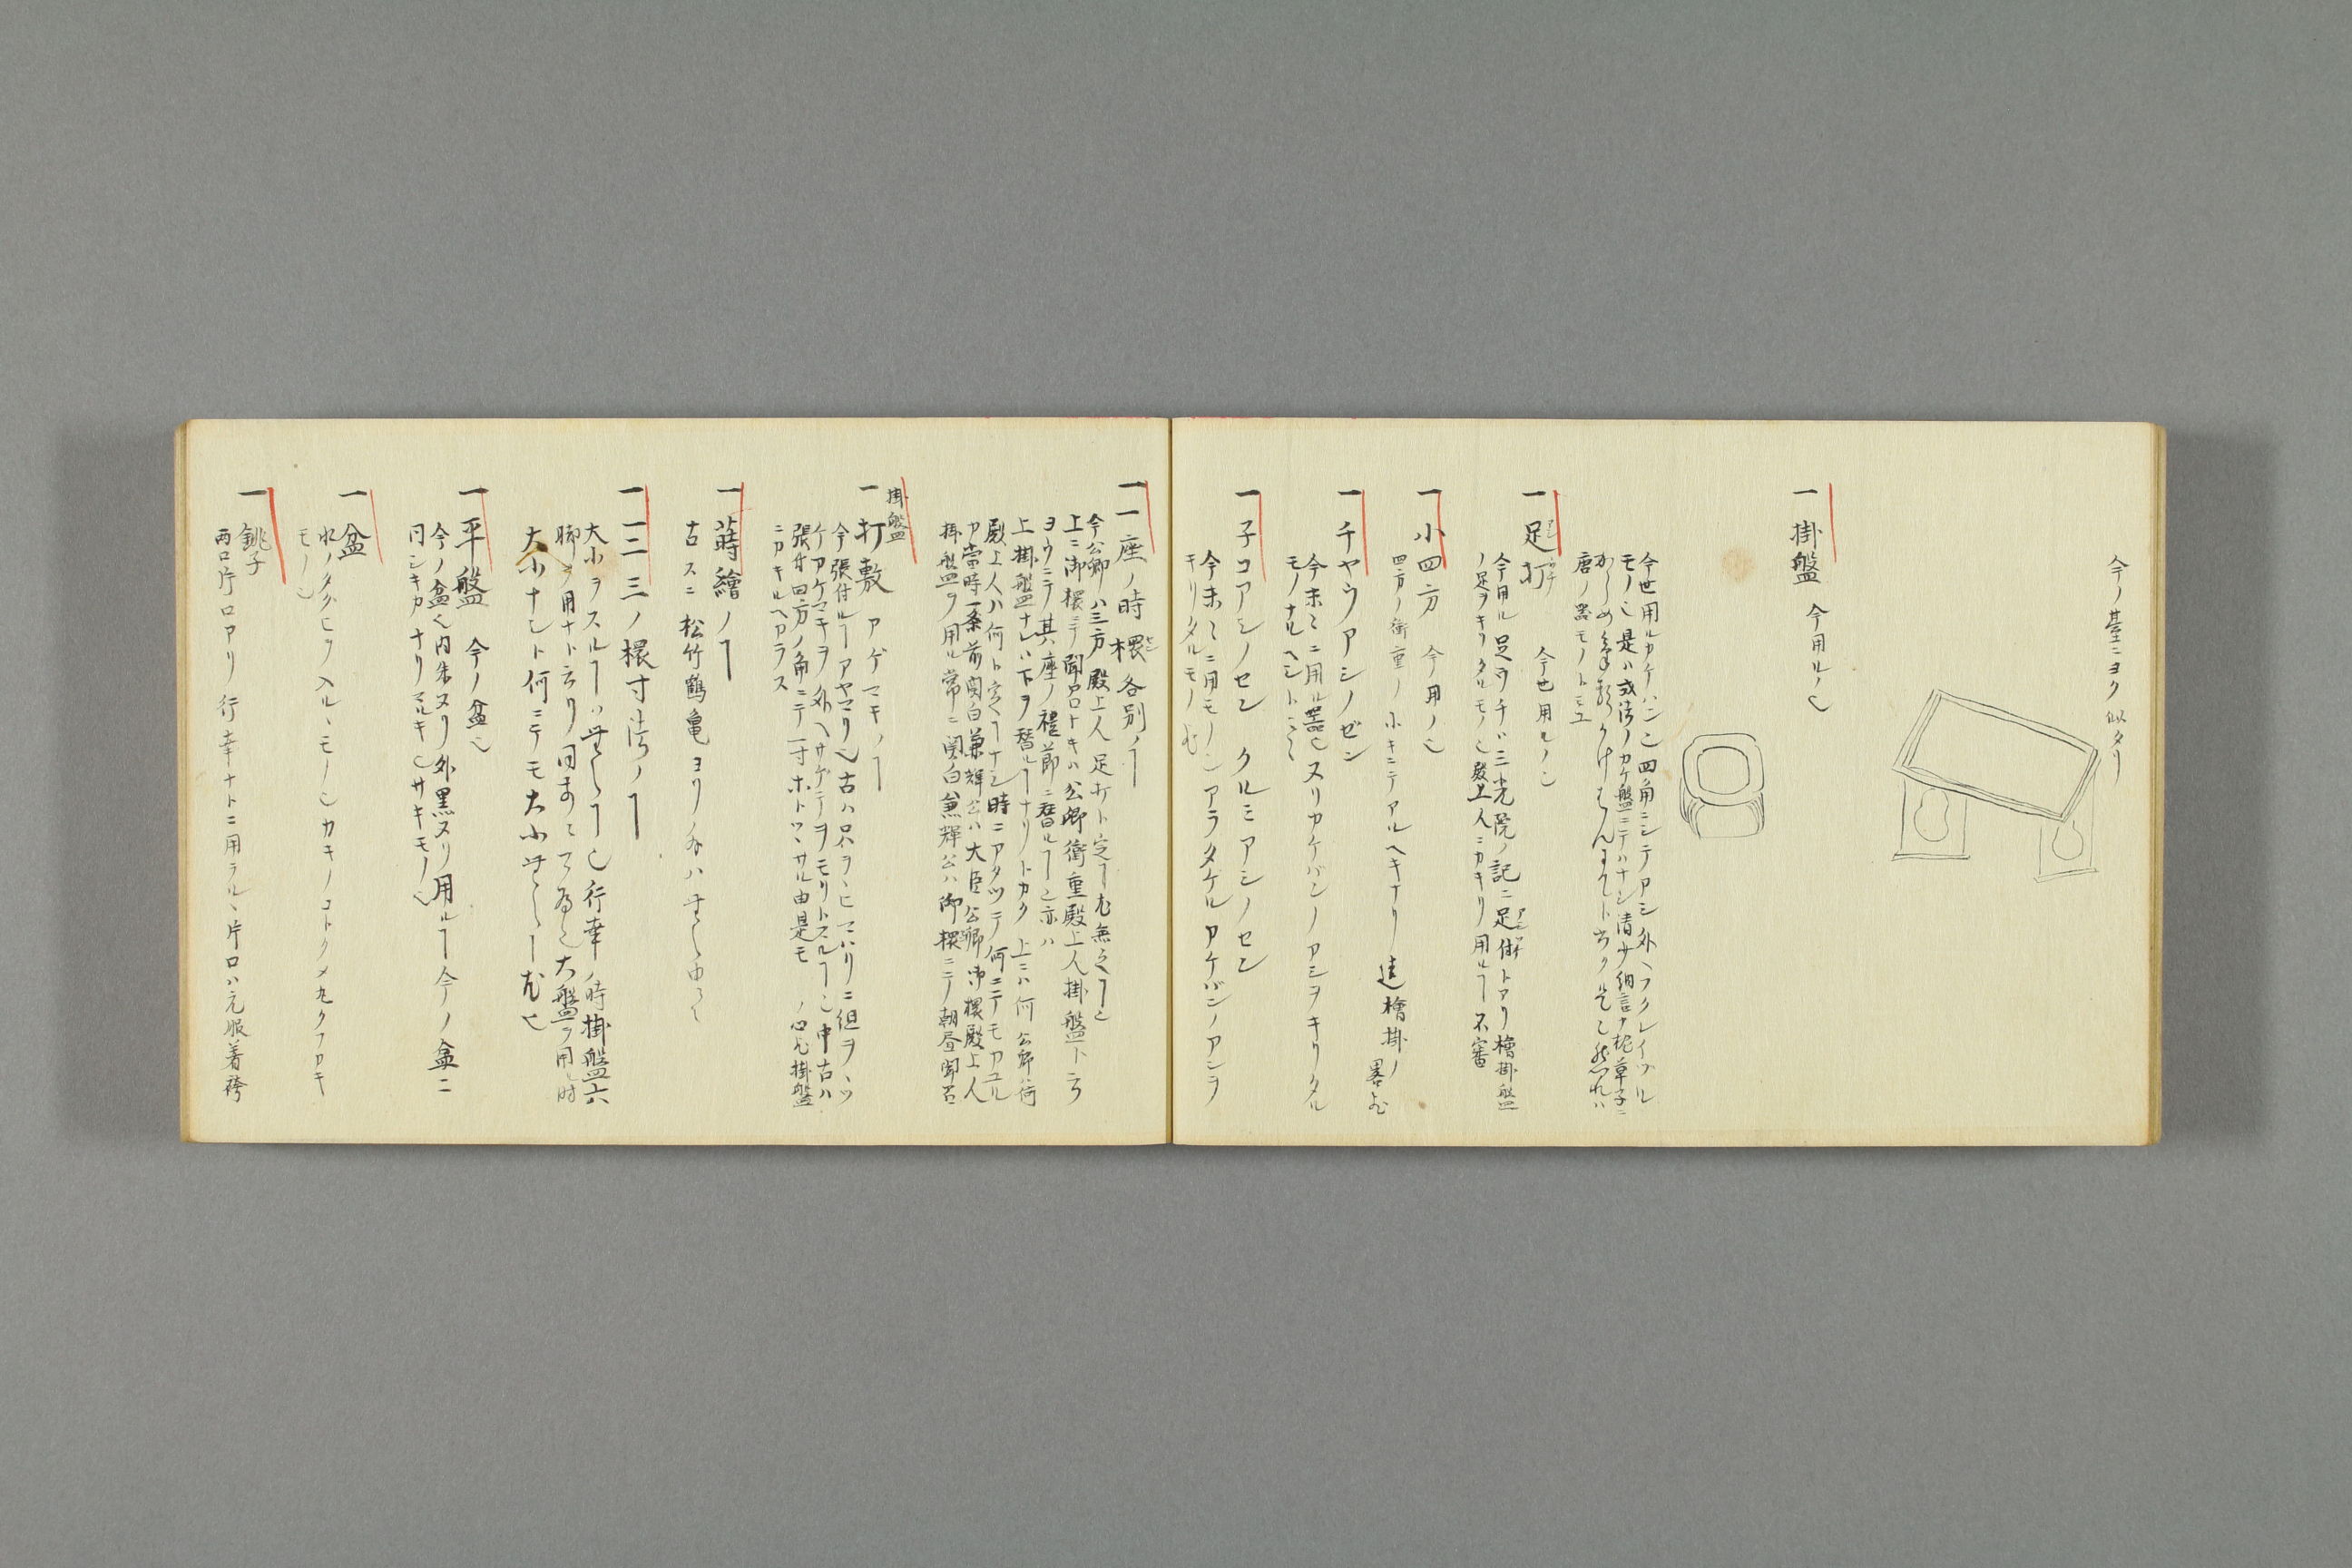 今ノ基ニヨク似タリ
一掛盤 今用ル也
今世用ルカケハン也四角ニシテアシ外ヘフクレイツル
モノ也是ハ式法ノカケ盤ニテハナシ清少納言カ枕草子ニ
唐ノ器モノト云
一足打 今世用ル也
今用ル足ウチハ三光院ノ記ニ足付トアリ檜掛盤
ノ足ヲキリタルモノ也殿上人ニカキリ用ルヿ不審
一小四方 今用ノ也
四方ノ衝重ノ小キニテアルヘキナリ 檜掛ノ
一チヤウアシノゼン
今末々ニ用ル器也ヌリカケバンノアシヲキリタル
モノナルヘシト云々
一子コアシノセン クルミアシノセン
今末々ニ用モノ也アラタケルカケバンノアシヲ
キリタルモノ也
一一座ノ時椳各別ノヿ
今公卿ハ三方殿上人足打ト定ヿ尤無之ヿ也
上ニ御椳ニテ聞召トキハ公卿衝重殿上人掛盤ト云
ヨウニテ其座ノ禮節ニ替ルヿ也亦ハ
上掛盤ナレハ下ヲ替ルヿナリトカク上ニハ何公卿何
殿上人ハ何ト定ヿナシ時ニアタツテ何ニテモカユル
カ當時一条前関白兼輝公ハ大臣公卿御椳殿上人
掛盤ヲ用ル常ニ関白兼輝公ハ御椳ニテ朝昼聞召
掛盤
一打敷 アゲマキノヿ
今張付ルヿアヤマリ也古ハ只ヲヽヒマハリニ紐ヲツ
ケアケマキヲ外ヘサゲテヲモリトスルヿ也中古ハ
張付四方ノ角ニテ一寸ホトツヽサル由是モ 掛盤
ニカキルヘカラス
一蒔繪ノヿ
古スニ松竹鶴亀ヨリ外ハ
一二三ノ椳寸法ノヿ
大小ヲスルヿハ無之ヿ也行幸ノ時掛盤六
脚ヲ用ナト云リ 大盤ヲ用ル時
大小ナシト何ニテモ大小無之ヿ尤也
一平盤 今ノ盆也
今ノ盆也内朱ヌリ外黒ヌリ用ルヿ今ノ盆ニ
同シキカナリマルキ也サキモノ也
一盆
水ノタグヒヲ入ルヽモノ也カキノコトクメ丸クフカキ
モノ也
一銚子
両口片口アリ行幸ナトニ用ラルヽ片口ハ元服着袴